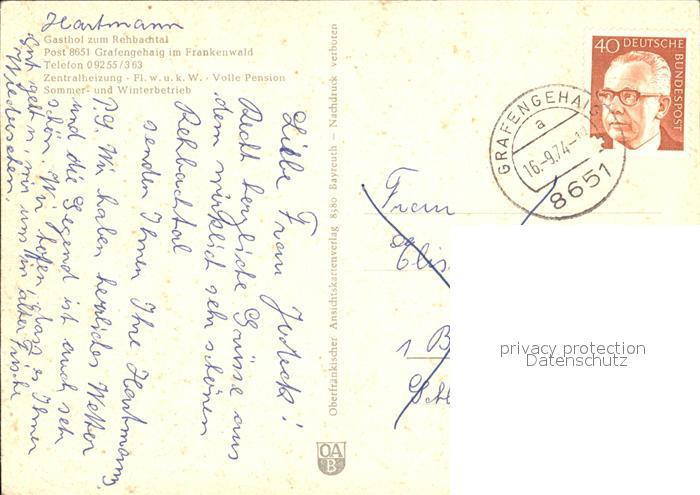 Hartmann
Gasthof zum Rehbachtal
Post 8651 Grafengehaig im Frankenwald
Telefon 09255/363
Zentralheizung - Fl. w. u. k. W. - Volle Pension
Sommer- und Winterbetrieb
Liebe Frau
Recht herzliche Grüsse aus
dem wirklich sehr schönen
Rehbachtal
senden Ihnen Ihre Hartmanns
P.S. Wir haben herrliches Wetter
und die Gegend ist auch sehr
schön. Wir hoffen, dass es Ihnen
gut geht u. wir uns in alter Frische
Wiedersehen.
Oberfränkischer Ansichtskartenverlag 8580 Bayreuth — Nachdruck verboten
OA
B
40 DEUTSCHE
BUNDESPOST
GRAFENGEHAIG
a
16.-9.74-11
8651
Frau
Elis
1 B
privacy protection
Datenschutz